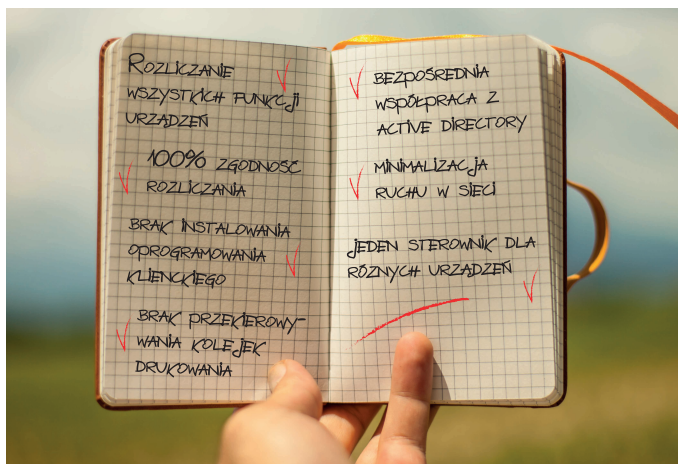 Rozliczanie
wszystkich funkcji
urządzeń
100% zgodność
rozliczania
brak instalowania
oprogramowania
klienckiego
brak przekierowy-
wania kolejek
drukowania
bezpośrednia
współpraca z
Active Directory
minimalizacja
ruchu w sieci
jeden sterownik dla
różnych urządzeń